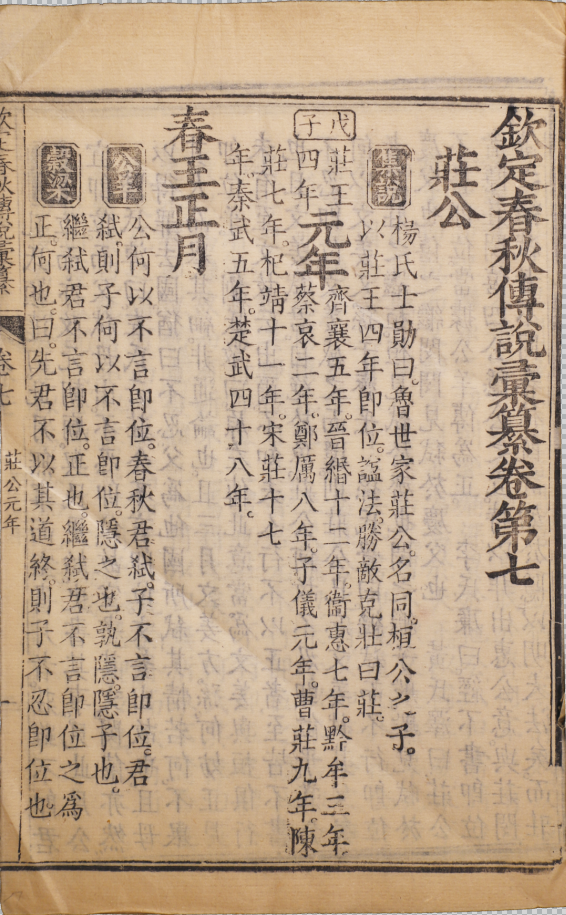 欽定春秋傳說彙纂卷第七
莊公
集說
楊氏士勛曰。魯世家莊公。名同。桓公之子。
以莊王四年卽位。諡法。勝敵克壯曰莊。
戊子
莊王
四年
元年
齊襄五年。晉緡十二年。衞惠七年。黔牟三年。
蔡哀二年。鄭厲八年。子儀元年。曹莊九年。陳
莊七年。杞靖十一年。宋莊十七
年。秦武五年。楚武四十八年。
春王正月
公羊
公何以不言卽位。春秋君弒。子不言卽位。君
弒。則子何以不言卽位。隱之也。孰隱。隱子也。
穀梁
繼弒君不言卽位。正也。繼弒君不言卽位之爲
正。何也。曰。先君不以其道終。則子不忍卽位也
欽定春秋傳說彙纂
卷七
莊公元年
一